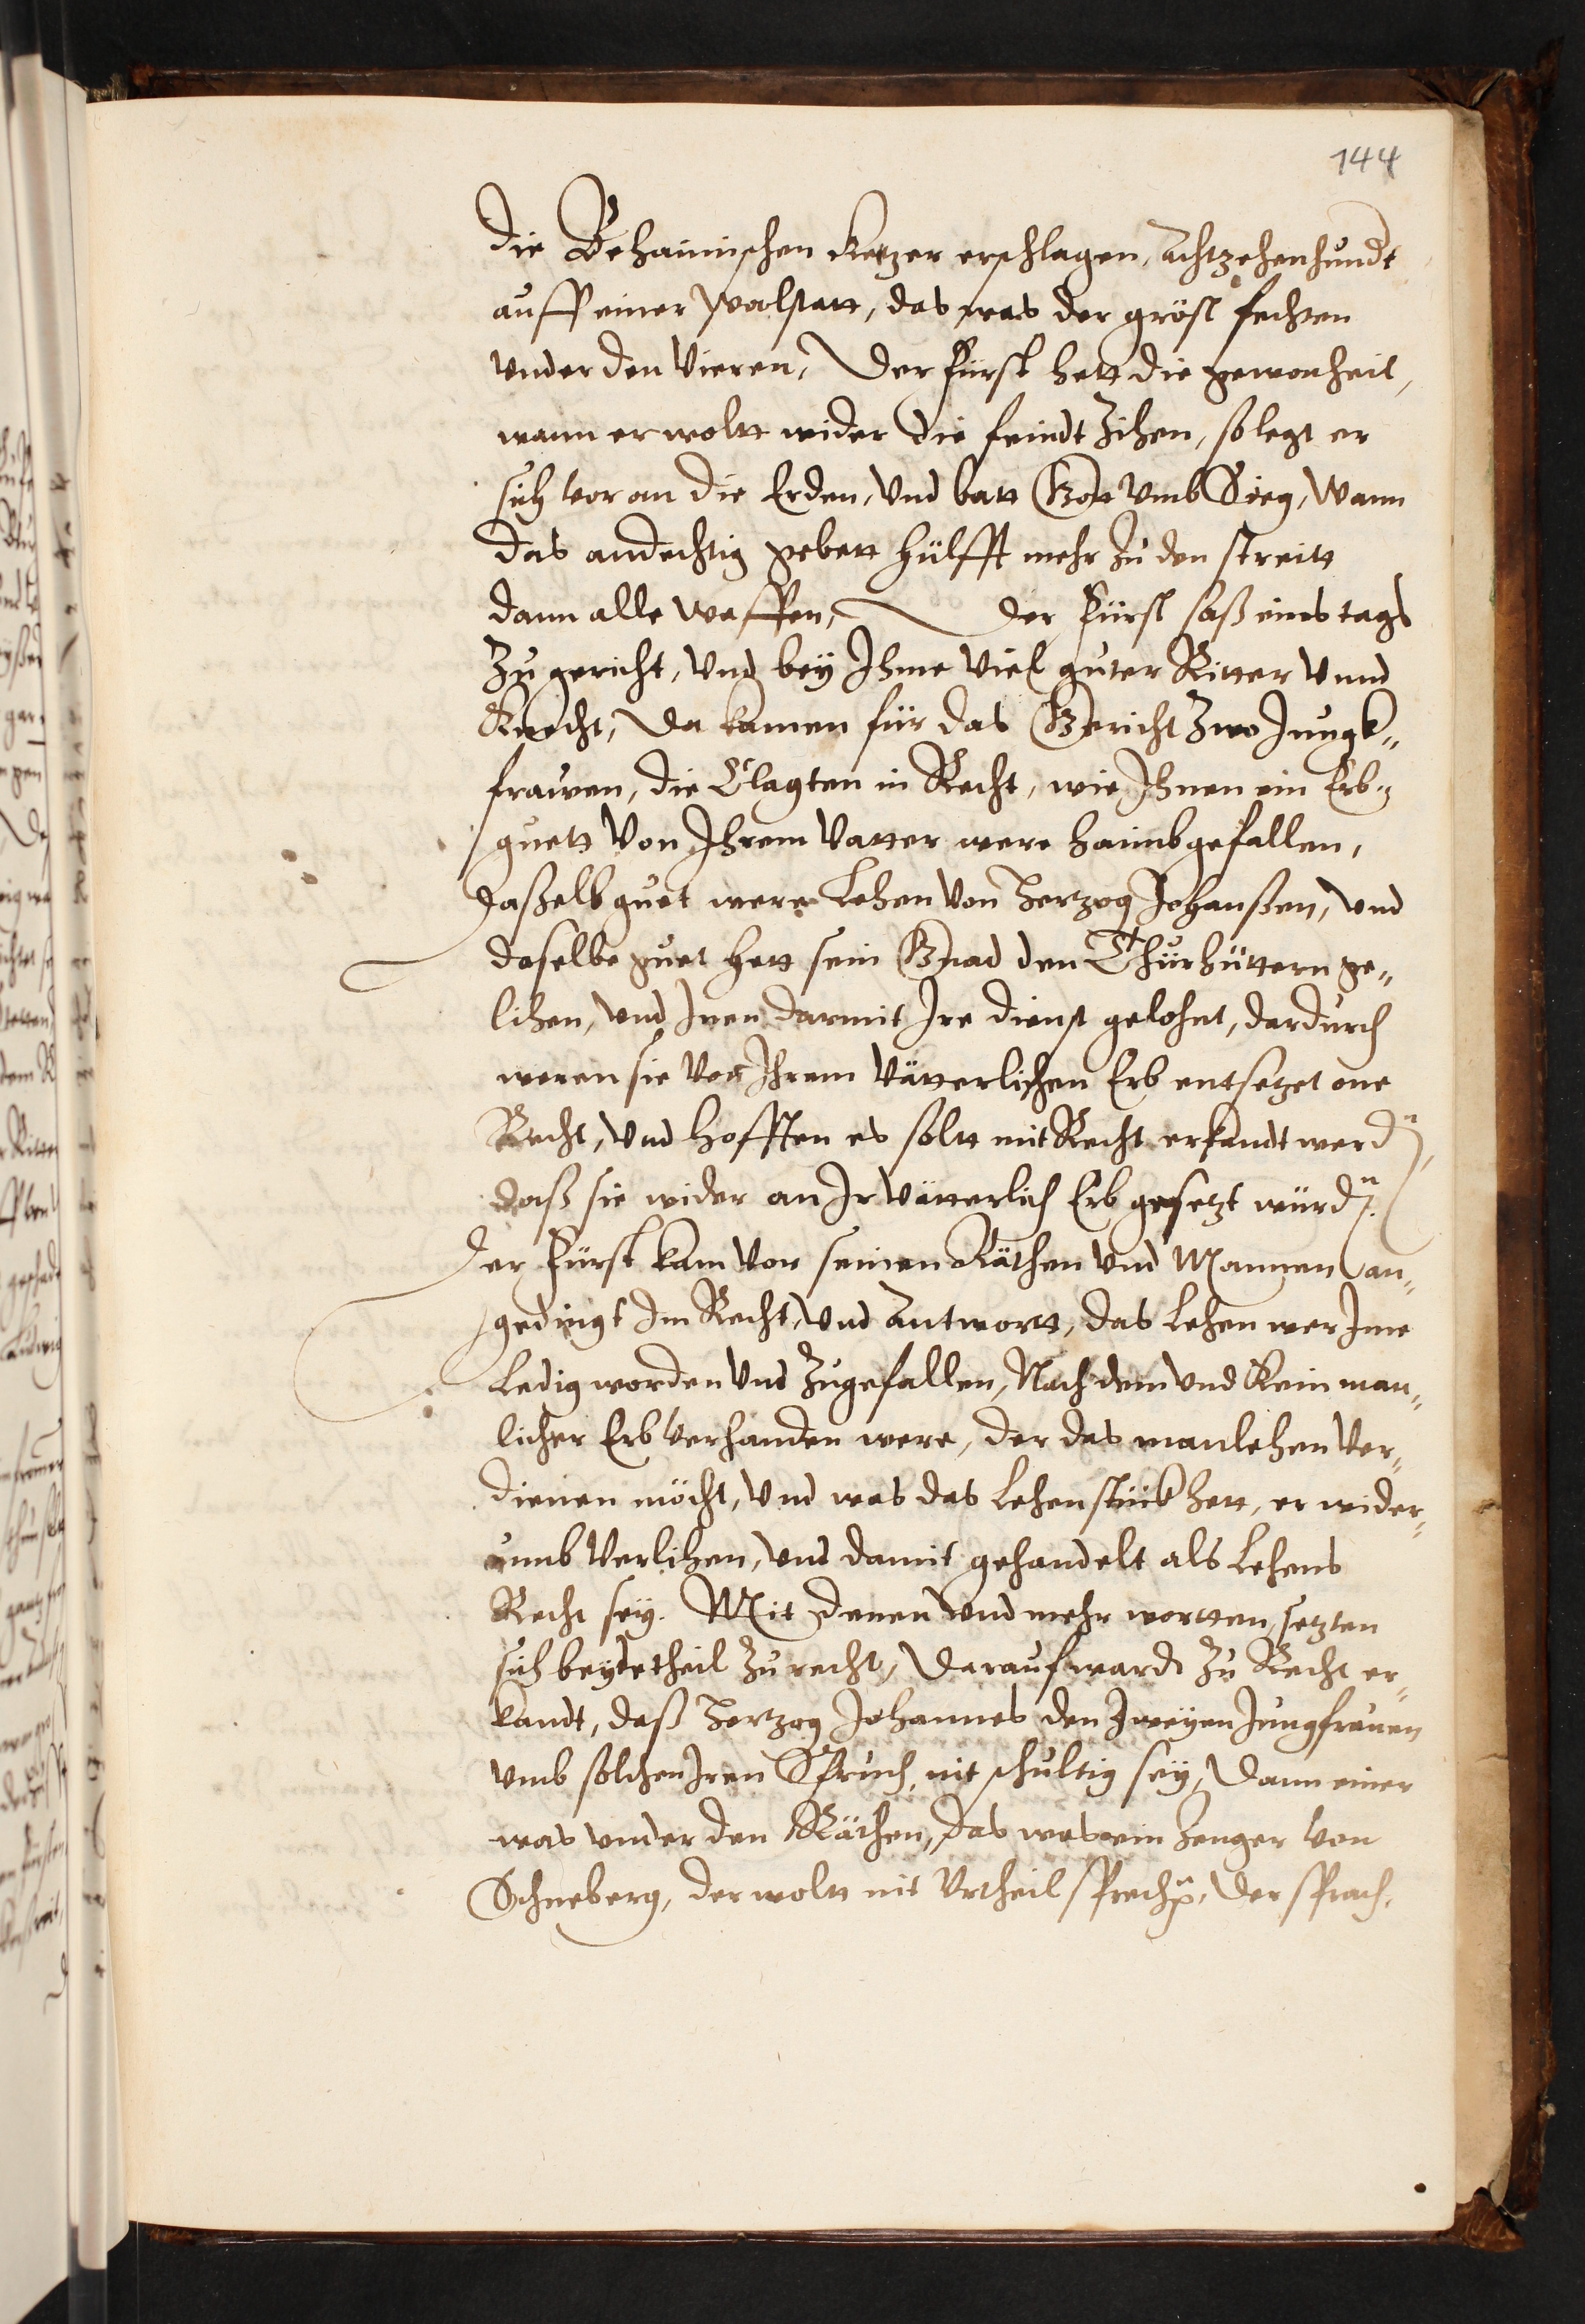 144
die Behaimischen Ketzer erschlagen, Achtzehenhundt
auff einer walstatt, das was der gröst fechten
vnder den Vieren, Der Fürst hett die gewonheit,
wann er woltt wider die feindt Zihen, so legt er
sich vor an die Erden, Vnd batt Gott Vmb Sieg, Wann
das andechtig gebett hülfft mehr Zu den streitt
dann alle waffen, der Fürst saß eines tags
Zu gericht, Vnd bey Ihme Viel guter Ritter Vnnd
Knecht, Da kamen für das Gericht Zwo Jungk„
frawen, die Clagten in Recht, wie Ihnen ein Erb„
guett Von Ihrem Vatter were haimbgefallen,
Daßelb guet were Lehen Von Hertzog Johanßen, Vnd
daselbe guet hett sein Gnad den Thürhüttern ge„
lihen, Vnd Iren darmit Ire dienst gelohnt, dardurch
weren sie Von Ihrem Vätterlichen Erb entsetzet one
Recht, Vnd hofften es soltt mit Recht erkandt werdn̄,
daß sie wider an Ir Vätterlich Erb gesetzt würdn̄.
Der Fürst kam Vor seinen Räthen Vnd Mannen an„
gedingt Im Recht, Vnd Antwortt, das Lehen wer Ime
Ledig worden Vnd Zugefallen, Nach dem Vnd Kein man„
licher Erb Verhanden were, der das manlehen Ver„
dienen möcht, Vnd was das Lehen stück hett, er wider„
umb Verlihen, Vnd damit gehandelt als Lehens
Recht sey. Mit denen Vnd mehr wortten, setzten
sich beydetheil Zu recht, Darauf wardt Zu Recht er„
kandt, daß Hertzog Johannes den Zweyen Jungfrauen
Vmb solchen Iren Spruch, nit schultig sey, Dann einer
was vnder den Räthen, das was ein Zenger von
Schneberg, der woltt nit Vrtheil sprechn̄, Der sprach,